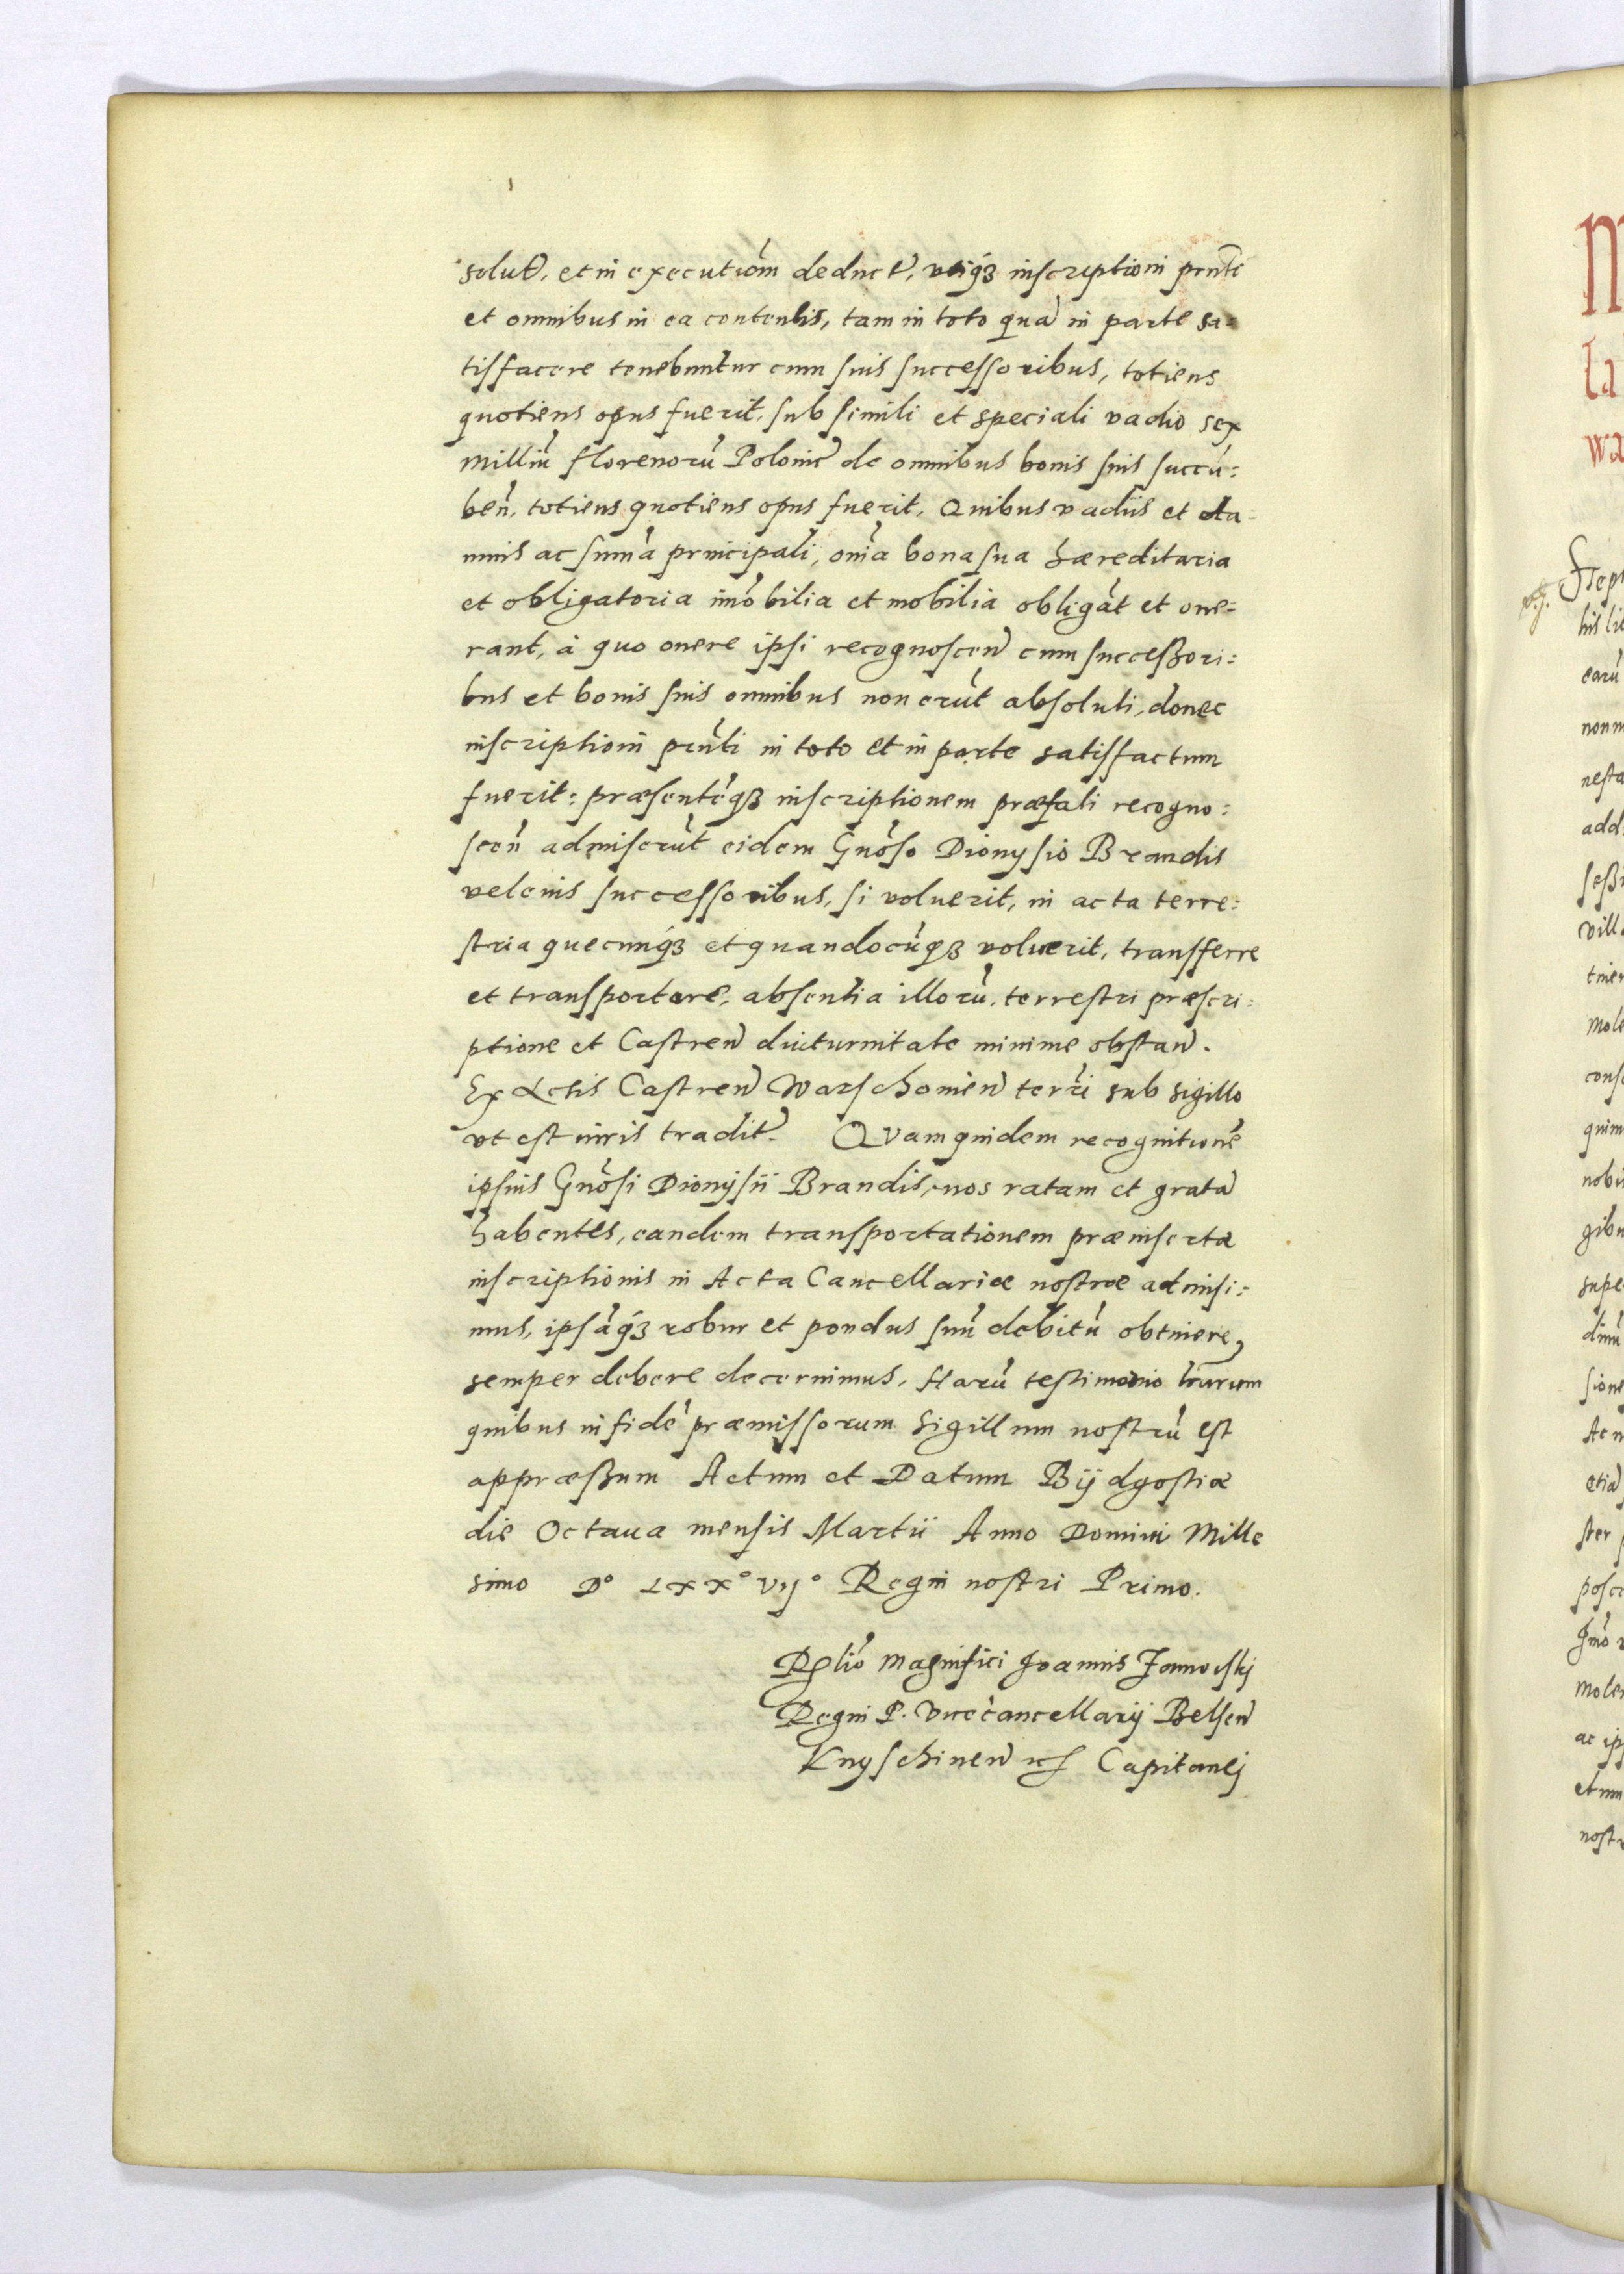 solut̃, et in executiõm deduct̃, utiq́ꝫ inscriptioni prn̄ti
et omnibus in ea contentis, tam in toto quā in parte sa=
tisfacere tenebuntur cum suis successoribus, totiens
quotiens opus fuerit, sub simili et speciali vadio sex
milliū florenorū Polonic̃ de omnibus bonis suis succū=
beñ, totiens quotiens opus fuerit, Quibus vadiis et da=
mnis ac sum̃a principali, om̃ia bona sua hæreditaria
et obligatoria im̃obilia et mobilia obligãt et one=
rant, à quo onere ipsi recognoscen̄ cum successori=
bus et bonis suis omnibus non erūt absoluti, donec
inscriptioni prn̄ti in toto et in parte satisfactum
fuerit: præsentēq́ꝫ inscriptionem præfati recogno=
scen̄ admiserūt eidem Gnõso Dionysio Brandis
vel eius successoribus, si voluerit, in acta terre=
stria quecunq́ꝫ et quandocūq́ꝫ voluerit, transferre
et transportare, absentia illorū, terrestri præscri=
ptione et Castren̄ diuturnitate minime obstan̄.
Ex Actis Castren̄ Warschouien̄ terr̃i sub sigillo
ut est iuris tradit̃. Quam quidem recognitionē
ipsius Gnõsi Dionÿsii Brandis, nos ratam et gratā
habentes, eandem transportationem præinsertæ
inscriptionis in Acta Cancellariæ nostræ admisi=
mus, ipsāq́ꝫ robur et pondus suū debitū obtinere,
semper debere decernimus, Harū testimonio lr̃arum
quibus in fidē præmissorum Sigillum nostrū est
appræssum Actum et Datum Bÿdgostiæ
die Octaua mensis Martii Anno Domini Mille
simo D° LXX° vij° Regni nostri Primo.
Rel̃io Magnifici Joannis
Regni P. Vicecancellarij Belsen̄
Knyschinen̄ Capitanej
M
la
wa
Step
his
earū
non m
nesta
add
seß
vill
mole
cons
quim
nobi
gibu
supe
sione
Ac n
etiā
ster
posc
mole
ac ip
nostr